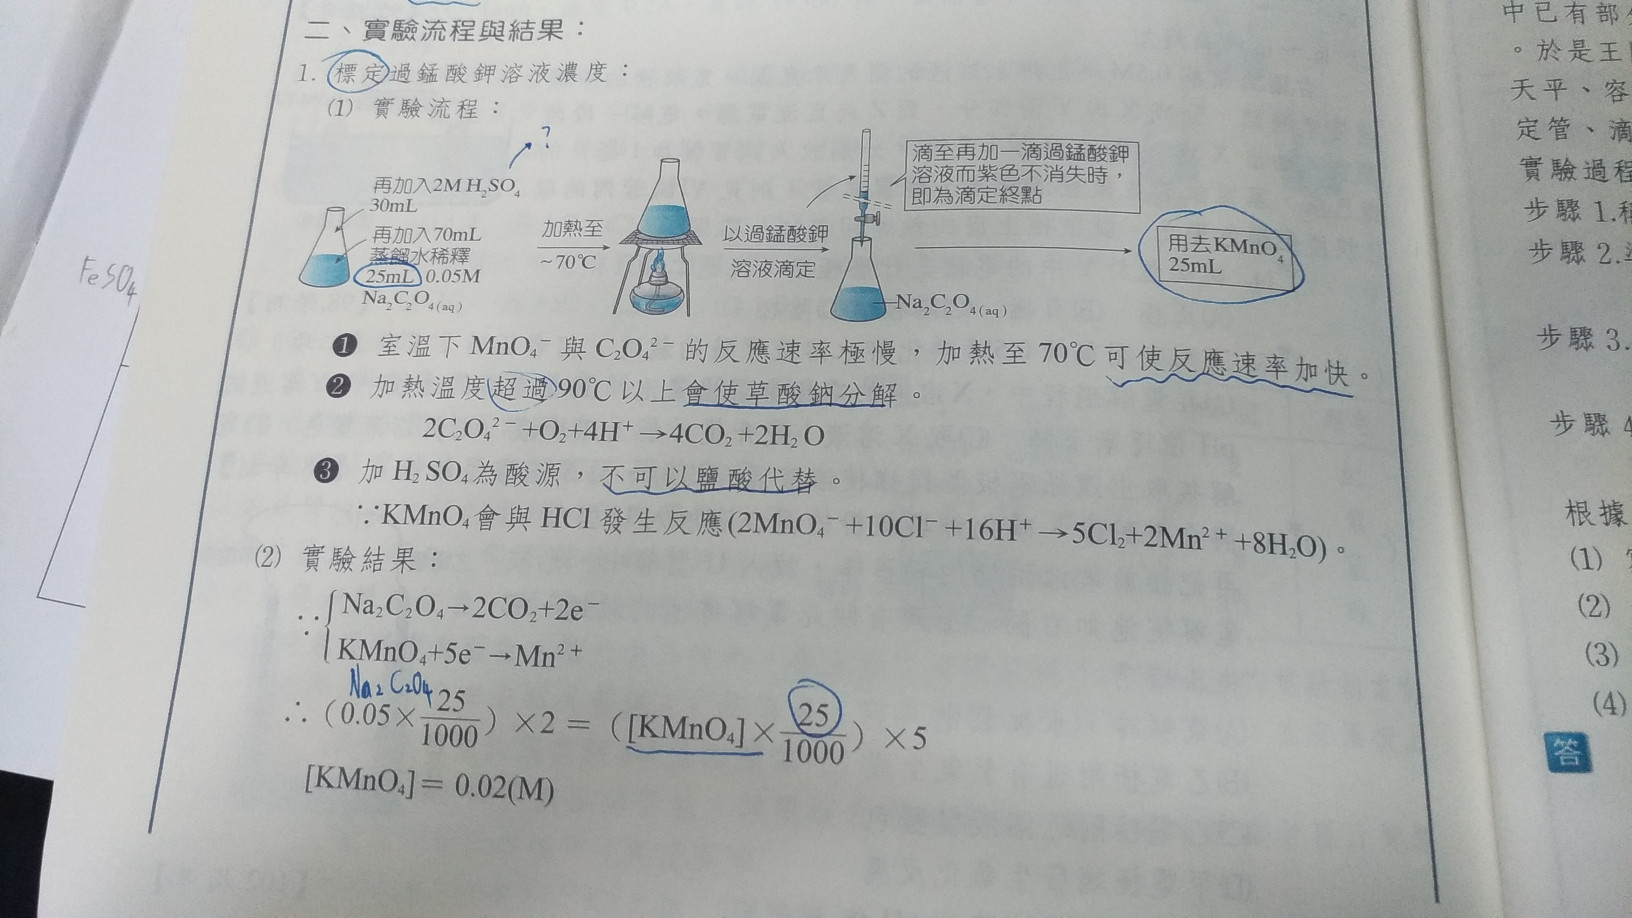 二、實驗流程與結果：
1. 標定過錳酸鉀溶液濃度：
(1) 實驗流程：
?
再加入2M H₂SO₄
30mL
再加入70mL
蒸餾水稀釋
25mL 0.05M
Na₂C₂O₄(aq)
加熱至
~70℃
以過錳酸鉀
溶液滴定
滴至再加一滴過錳酸鉀
溶液而紫色不消失時，
即為滴定終點
Na₂C₂O₄(aq)
用去KMnO₄
25mL
FeSO₄
❶ 室溫下 MnO₄⁻ 與 C₂O₄²⁻ 的反應速率極慢，加熱至 70℃ 可使反應速率加快。
❷ 加熱溫度超過90℃以上會使草酸鈉分解。
2C₂O₄²⁻+O₂+4H⁺→4CO₂+2H₂O
❸ 加 H₂SO₄為酸源，不可以鹽酸代替。
∵KMnO₄會與 HCl 發生反應(2MnO₄⁻+10Cl⁻+16H⁺→5Cl₂+2Mn²⁺+8H₂O)。
(2) 實驗結果：
∵{Na₂C₂O₄→2CO₂+2e⁻
KMnO₄+5e⁻→Mn²⁺
Na₂C₂O₄
∴（0.05×25/1000）×2＝（[KMnO₄]×25/1000）×5
[KMnO₄]＝0.02(M)
中已有部
。於是王
天平、容
定管、滴
實驗過程
步驟 1.
步驟 2.
步驟 3.
步驟 4
根據
(1)
(2)
(3)
(4)
答